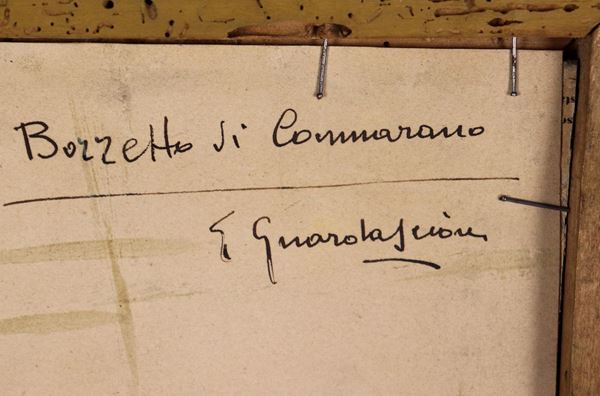 Bozzetto di Cammarano
E Guardascione